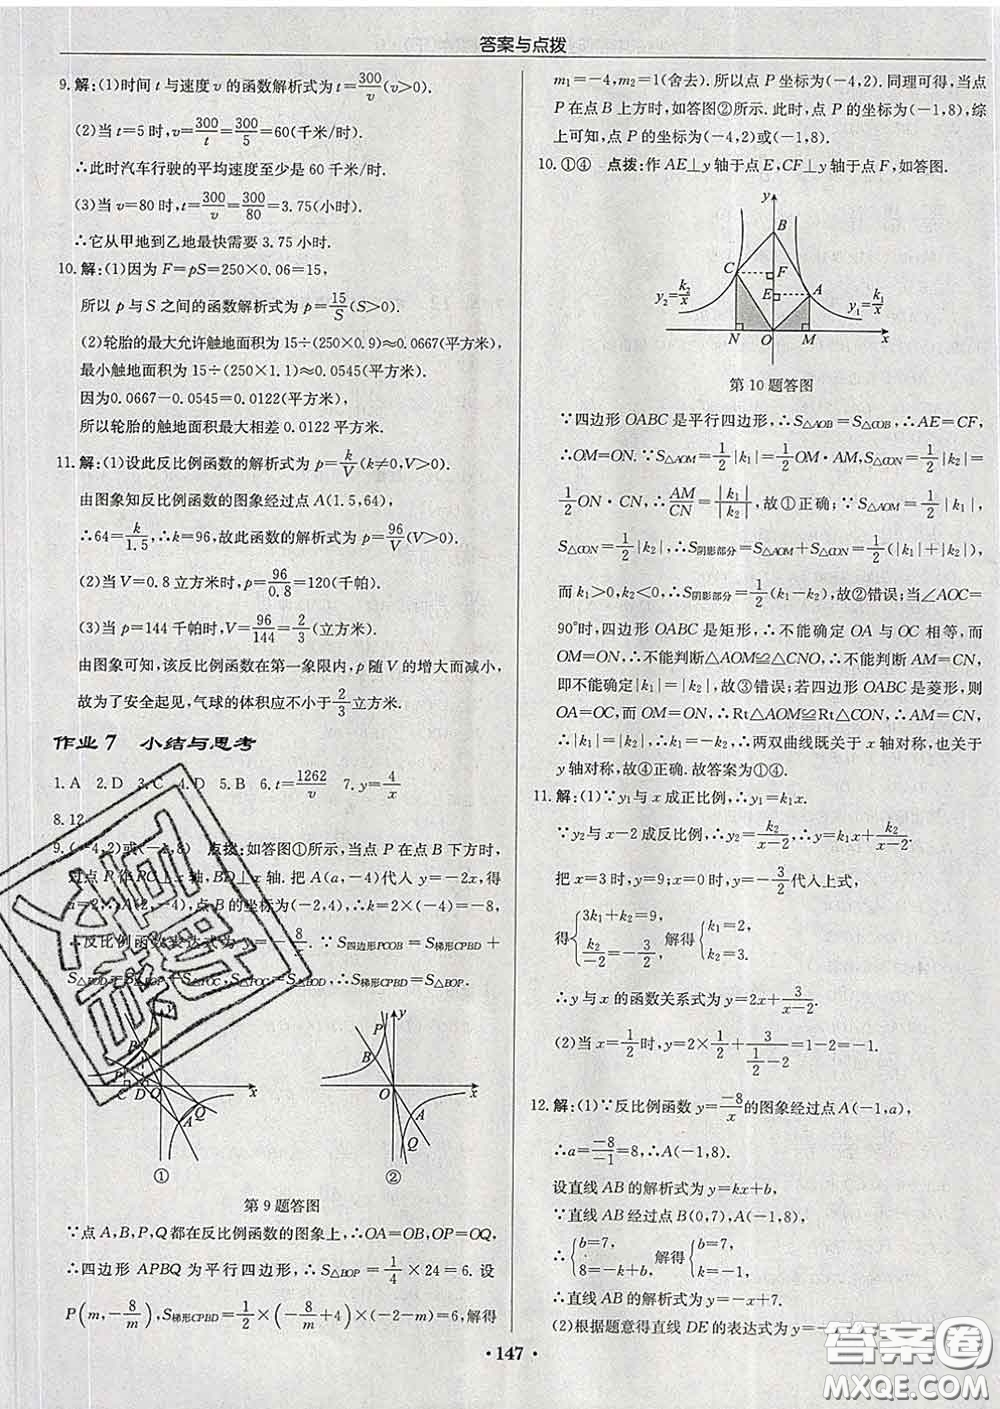 答案与点拨
9. 解:(1)时间 t 与速度 v 的函数解析式为 t=300/v(v>0).
(2)当 t=5 时,v=300/t=300/5=60(千米/时).
∴此时汽车行驶的平均速度至少是 60 千米/时.
(3)当 v=80 时,t=300/v=300/80=3.75(小时).
∴它从甲地到乙地最快需要 3.75 小时.
10. 解:(1)因为 F=pS=250×0.06=15,
所以 p 与 S 之间的函数解析式为 p=15/S(S>0).
(2)轮胎的最大允许触地面积为 15÷(250×0.9)≈0.0667(平方米),
最小触地面积为 15÷(250×1.1)≈0.0545(平方米).
因为 0.0667-0.0545=0.0122(平方米),
所以轮胎的触地面积最大相差 0.0122 平方米.
11. 解:(1)设此反比例函数的解析式为 p=k/V(k≠0,V>0).
由图象知反比例函数的图象经过点 A(1.5,64),
∴64=k/1.5,∴k=96,故此函数的解析式为 p=96/V(V>0).
(2)当 V=0.8 立方米时,p=96/0.8=120(千帕).
(3)当 p=144 千帕时,V=96/144=2/3(立方米).
由图象可知,该反比例函数在第一象限内,p 随 V 的增大而减小,
故为了安全起见,气球的体积应不小于2/3立方米.
作业 7 小结与思考
1. A 2. D 3. C 4. D 5. B 6. t=1262/v 7. y=4/x
8. 12
9. (-4,2)或(-1,8) 点拨:如答图①所示,当点 P 在点 B 下方时,
过点 P 作 PC⊥x 轴,BD⊥x 轴. 把 A(a,-4)代入 y=-2x,得
a=2,∴A(2,-4),点 B 的坐标为(-2,4),∴k=2×(-4)=-8,
∴反比例函数表达式为 y=-8/x. ∵S四边形PCOB=S梯形CPBD+
S△BOD=S△POC+S△BOP,S△POC=S△BOD,∴S梯形CPBD=S△BOP.
y B P C D O x Q A ①
y P B O x A Q ②
第 9 题答图
∵点 A,B,P,Q 都在反比例函数的图象上,∴OA=OB,OP=OQ,
∴四边形 APBQ 为平行四边形,∴S△BOP=1/4×24=6. 设
P(m,-8/m),S梯形CPBD=1/2×(-8/m+4)×(-2-m)=6,解得
m₁=-4,m₂=1(舍去). 所以点 P 坐标为(-4,2). 同理可得,当点
P 在点 B 上方时,如答图②所示. 此时,点 P 的坐标为(-1,8),综
上可知,点 P 的坐标为(-4,2)或(-1,8).
10. ①④ 点拨:作 AE⊥y 轴于点 E,CF⊥y 轴于点 F,如答图.
y B C F E A y₂=k₂/x y₁=k₁/x N O M x
第 10 题答图
∵四边形 OABC 是平行四边形,∴S△AOB=S△COB,∴AE=CF,
∴OM=ON. ∵S△AOM=1/2|k₁|=1/2OM·AM,S△CON=1/2|k₂|=
1/2ON·CN,∴AM/CN=|k₁|/|k₂|,故①正确;∵S△AOM=1/2|k₁|,
S△CON=1/2|k₂|,∴S阴影部分=S△AOM+S△CON=1/2(|k₁|+|k₂|),
而 k₁>0,k₂<0,∴S阴影部分=1/2(k₁-k₂),故②错误;当∠AOC=
90°时,四边形 OABC 是矩形,∴不能确定 OA 与 OC 相等,而
OM=ON,∴不能判断△AOM≌△CNO,∴不能判断 AM=CN,
即不能确定|k₁|=|k₂|,故③错误;若四边形 OABC 是菱形,则
OA=OC,而 OM=ON,∴Rt△AOM≌Rt△CON,∴AM=CN,
∴|k₁|=|k₂|,∴k₁=-k₂,∴两双曲线既关于 x 轴对称,也关于
y 轴对称,故④正确. 故答案为①④.
11. 解:(1)∵y₁与 x 成正比例,∴y₁=k₁x.
∵y₂与 x-2 成反比例,∴y₂=k₂/(x-2),∴y=k₁x+k₂/(x-2).
把 x=3 时,y=9;x=0 时,y=-3/2代入上式,
得{3k₁+k₂=9, k₂/-2=-3/2, 解得{k₁=2, k₂=3.
∴y 与 x 的函数关系式为 y=2x+3/(x-2).
(2)当 x=1/2时,y=2×1/2+3/(1/2-2)=1-2=-1.
12. 解:(1)∵反比例函数 y=-8/x的图象经过点 A(-1,a),
∴a=-8/-1=8,∴A(-1,8).
设直线 AB 的解析式为 y=kx+b,
∵直线 AB 经过点 B(0,7),A(-1,8),
∴{b=7, 8=-k+b, 解得{b=7, k=-1.
∴直线 AB 的解析式为 y=-x+7.
(2)根据题意得直线 DE 的表达式为 y=
· 147 ·
答案圈
MXQE.COM